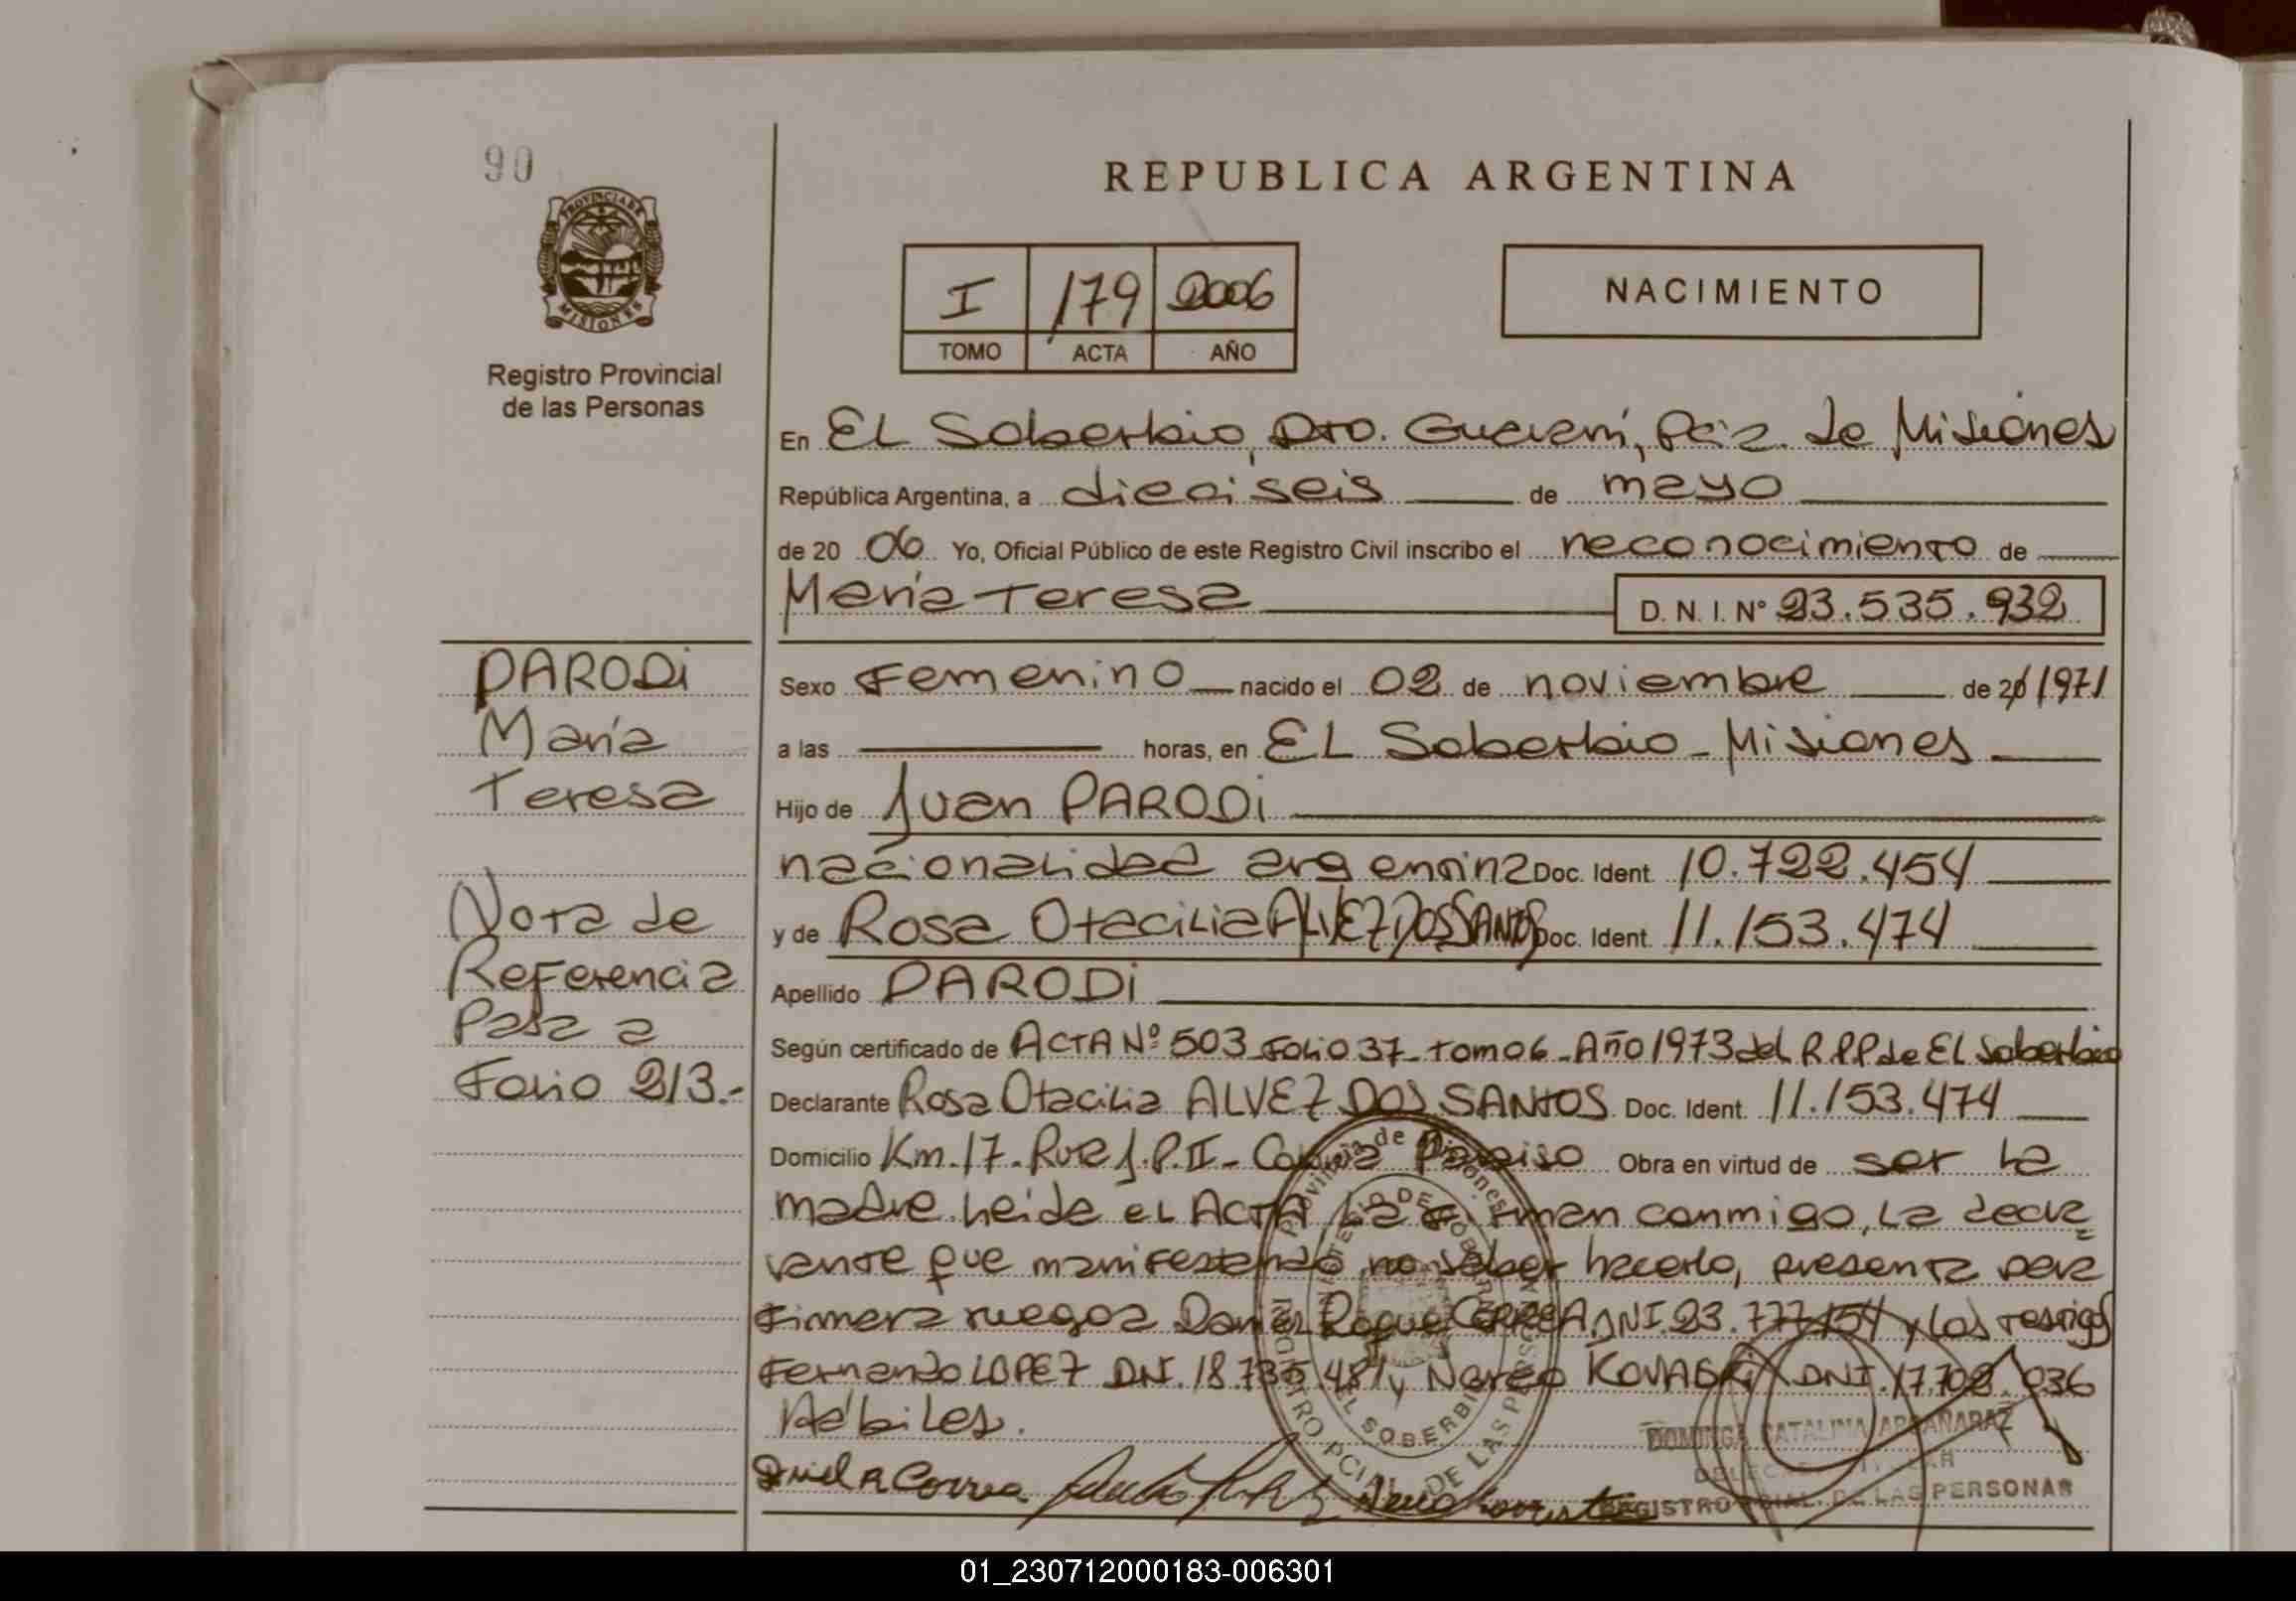 90
PROVINCIA DE
MISIONES
Registro Provincial
de las Personas
REPUBLICA ARGENTINA
I 179 2006
TOMO ACTA AÑO
NACIMIENTO
En EL Soberbio, Dto. Guaraní, Pcia. de Misiones
República Argentina, a dieciseis de mayo
de 20 06 Yo, Oficial Público de este Registro Civil inscribo el reconocimiento de
María Teresa D. N. I. Nº 23.535.932
Sexo Femenino nacido el 02 de noviembre de 20 1971
a las horas, en EL Soberbio - Misiones
Hijo de Juan PARODi
nacionalidad argentina Doc. Ident. 10.722.454
y de Rosa Otacilia ALVEZ DOS SANTOS Doc. Ident. 11.153.474
Apellido PARODi
Según certificado de ACTA Nº 503 Folio 37 - Tomo 6 - Año 1973 del R.P.P. de EL Soberbio
Declarante Rosa Otacilia ALVEZ DOS SANTOS Doc. Ident. 11.153.474
Domicilio Km. 17 - Ruta J.P.II - Colonia Paraiso Obra en virtud de ser la
madre. Leida el ACTA La firman conmigo, La decla
rante que manifestando no saber hacerlo, presenta para
firmar a ruego a Daniel Roque CORREA DNI. 23.777.154 y Los testigos
Fernando LOPEZ DNI. 18.735.481 y Nereo DNI. 17.702.036
Hábiles.
PARODi
María
Teresa
Nota de
Referencia
Pasa a
Folio 213.-
Provincia de Misiones
MINISTERIO DE GOBIERNO
REGISTRO PCIAL. DE LAS PERSONAS
EL SOBERBIO
Correa
DOMINGA CATALINA ARGAÑARAZ
REGISTRO PCIAL. DE LAS PERSONAS
01_230712000183-006301